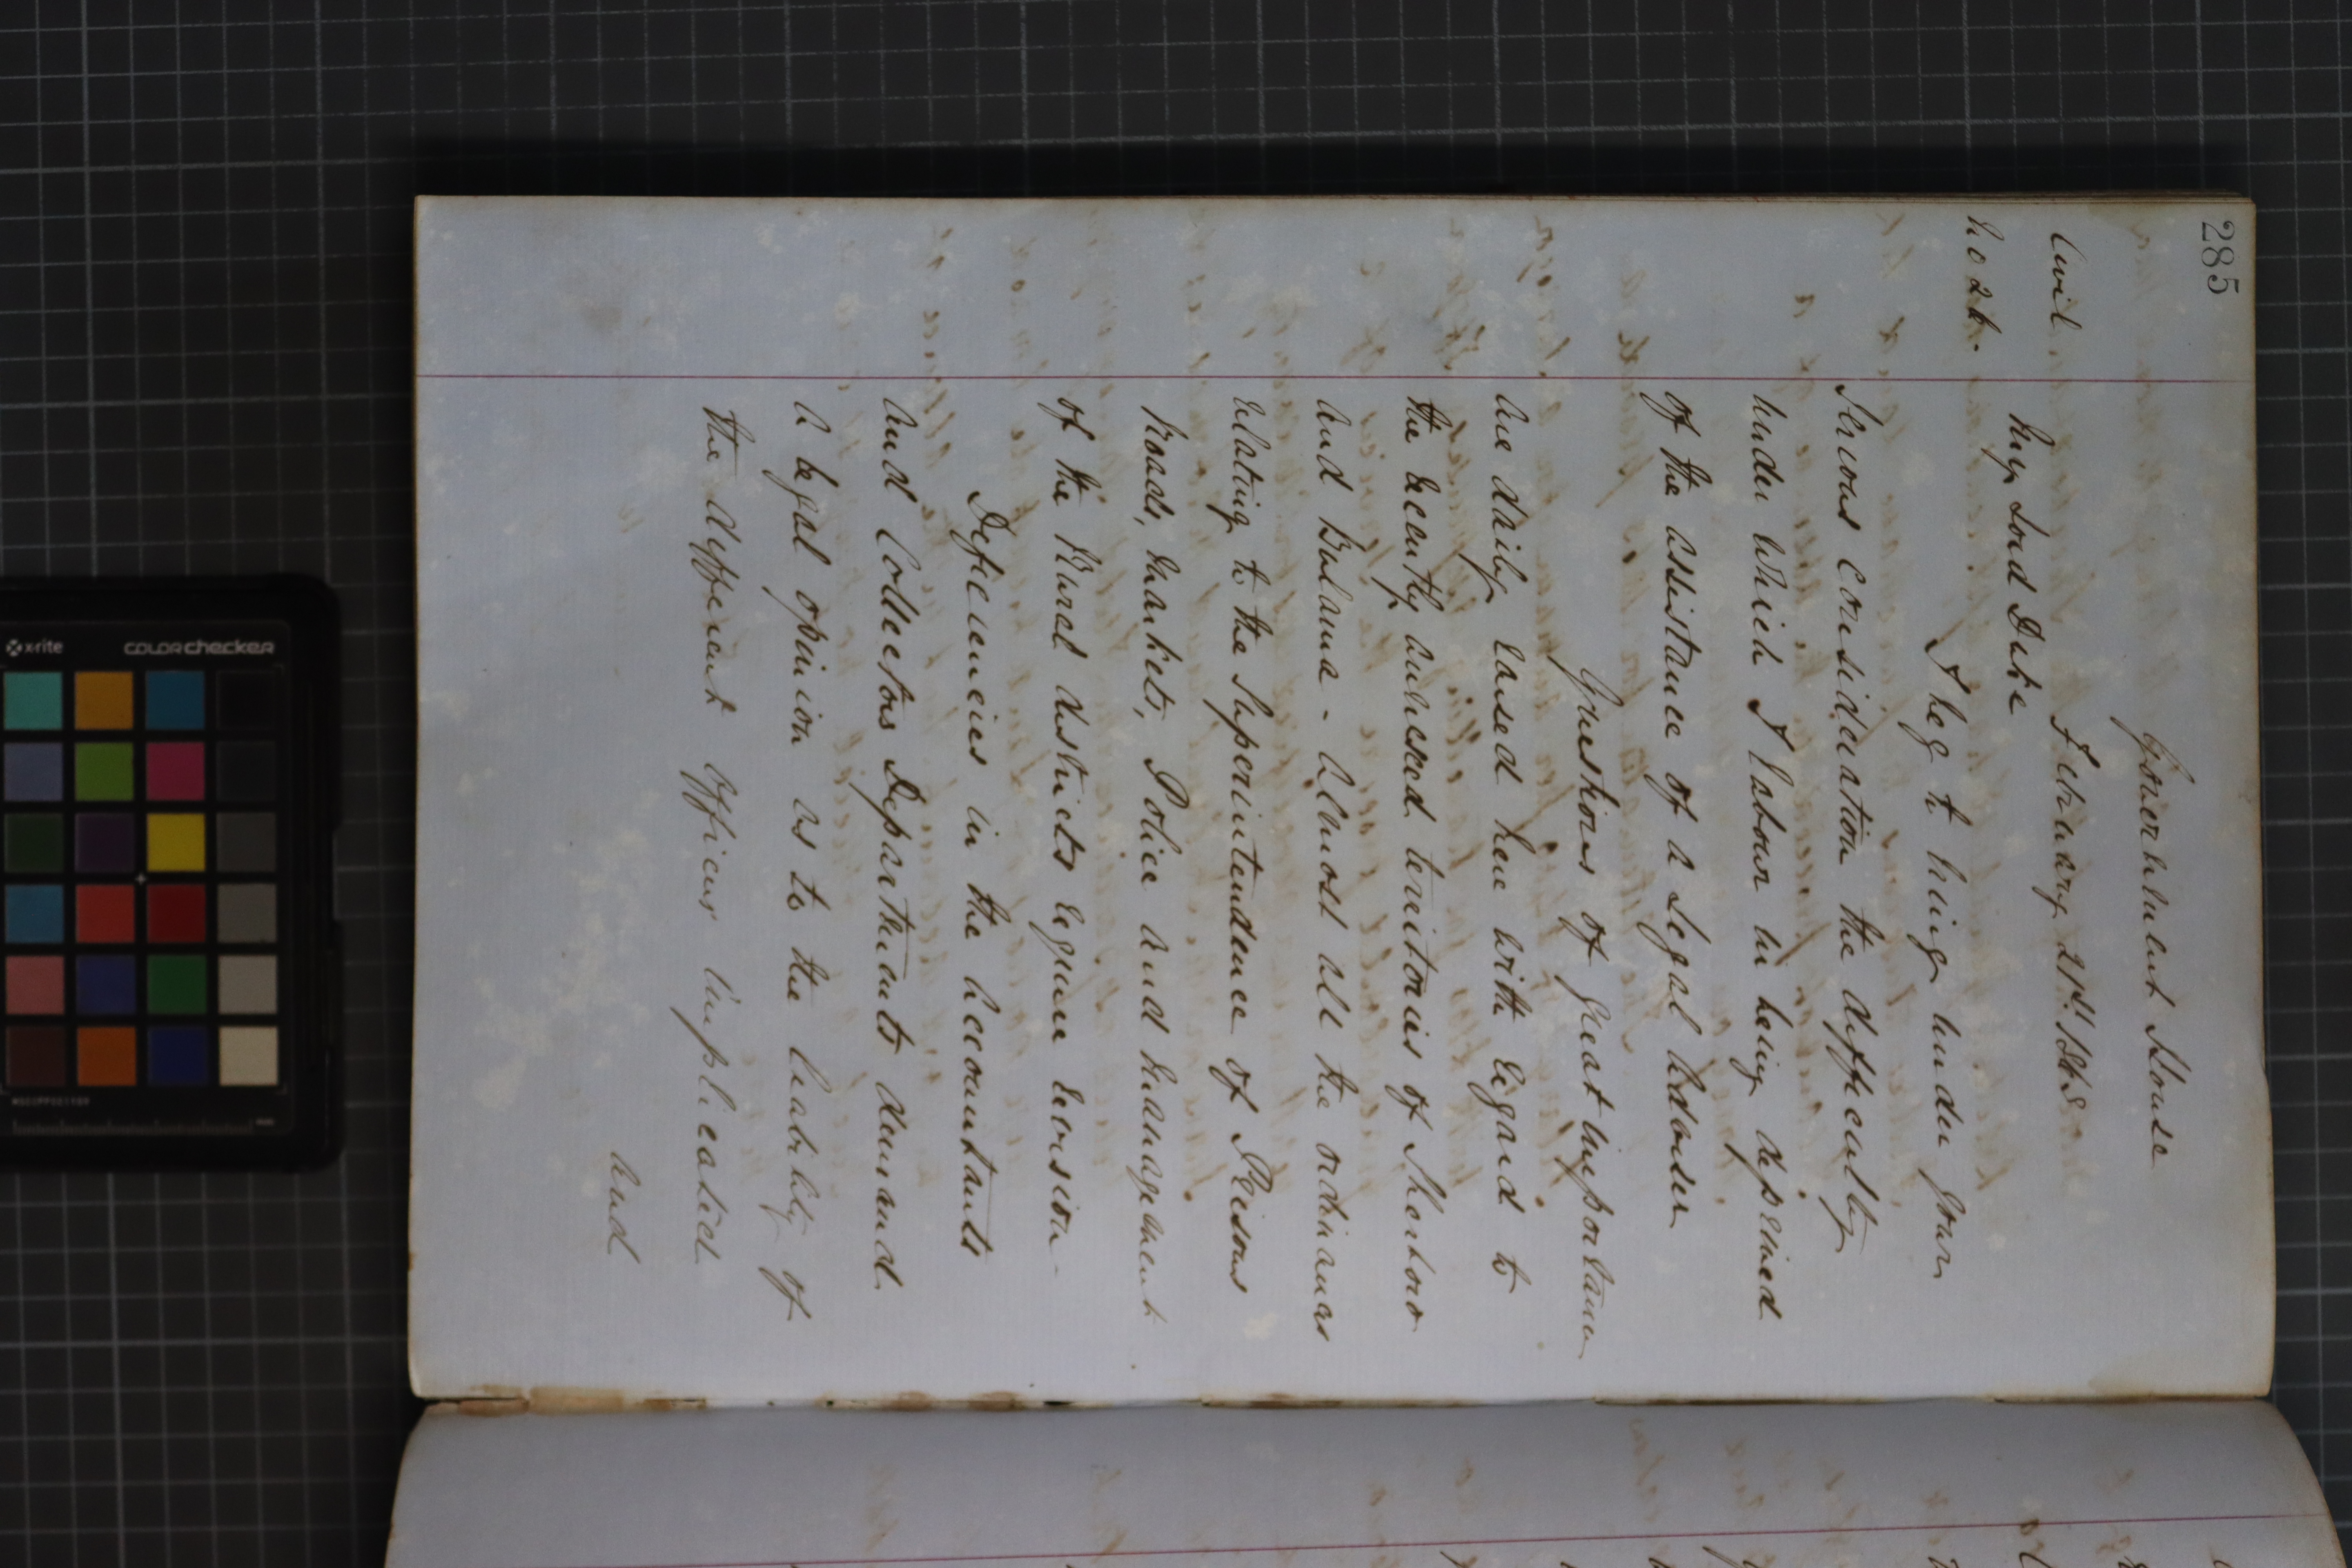 285
Government House
Civil
February 21st. 1868
No 26.
My Lord Duke
I beg to bring under Your
Serious consideration the difficulty
under which I labour in being deprived
of the assistance of a Legal Adviser
Questions of great importance
are daily raised here with regard to
the recently annexed territories of Sherbro
and Bulama - Almost all the ordinances
relating to the Superintendence of Prisons
Roads, Markets, Police and Management
of the Rural districts require revision -
Deficiencies in the Accountants
and Collectors Departments demand
a legal opinion as to the liability of
the different Officers implicated
and
x-rite
colorchecker